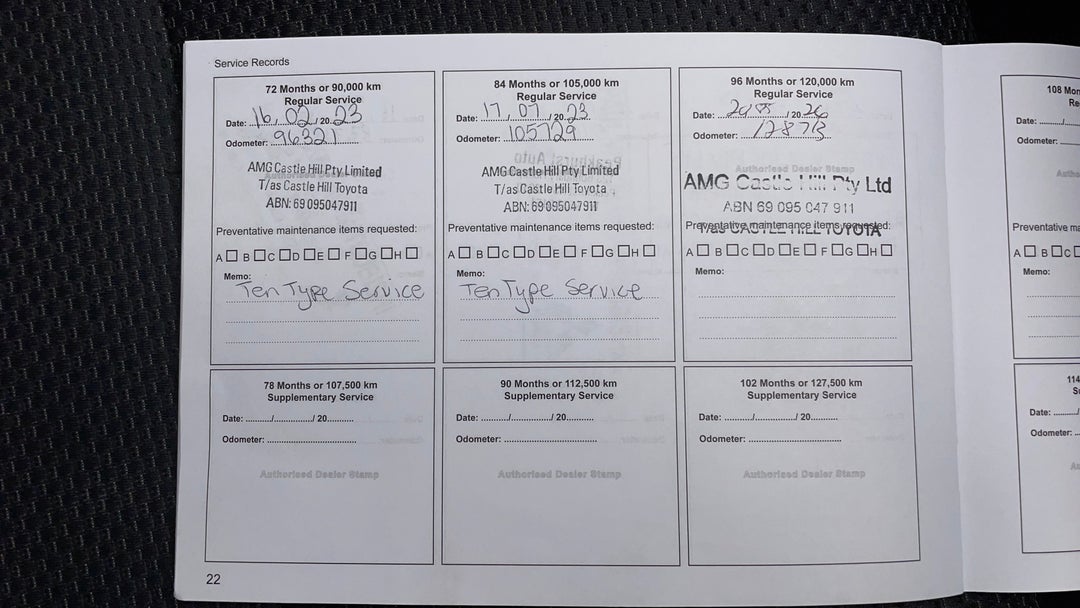 Service Records
72 Months or 90,000 km
Regular Service
Date: 16, 02, 20 23
Odometer: 96321
AMG Castle Hill Pty Limited
T/as Castle Hill Toyota
ABN: 69 095047911
Preventative maintenance items requested:
A B C D E F G H
Memo:
Ten Type Service
84 Months or 105,000 km
Regular Service
Date: 17, 07, 20 23
Odometer: 105729
AMG Castle Hill Pty Limited
T/as Castle Hill Toyota
ABN: 69 095047911
Preventative maintenance items requested:
A B C D E F G H
Memo:
Ten Type Service
96 Months or 120,000 km
Regular Service
Date: / 20
Odometer:
Authorised Dealer Stamp
AMG Castle Hill Pty Ltd
ABN 69 095 047 911
T/as CASTLE HILL TOYOTA
Preventative maintenance items requested:
A B C D E F G H
Memo:
78 Months or 107,500 km
Supplementary Service
Date: / / 20
Odometer:
Authorised Dealer Stamp
90 Months or 112,500 km
Supplementary Service
Date: / / 20
Odometer:
Authorised Dealer Stamp
102 Months or 127,500 km
Supplementary Service
Date: / / 20
Odometer:
Authorised Dealer Stamp
108 Mon
Re
Date: /
Odometer:
Autho
Preventative ma
A B C
Memo:
114
S
Date: /
Odometer:
Au
22